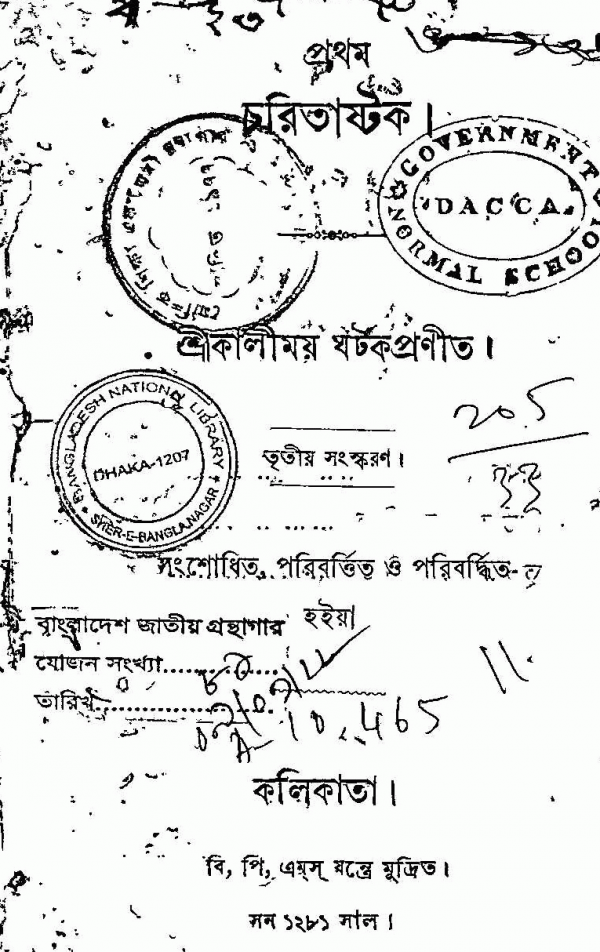 প্রথম
চরিতাষ্টক।
GOVERNMENT
NORMAL SCHOOL
DACCA
শ্রীকালীময় ঘটকপ্রণীত।
BANGLADESH NATIONAL LIBRARY
DHAKA-1207
SHER-E-BANGLA NAGAR
তৃতীয় সংস্করণ।
205
সংশোধিত, পরিবর্ত্তিত ও পরিবর্দ্ধিত
হইয়া
বাংলাদেশ জাতীয় গ্রন্থাগার
যোজন সংখ্যা
তারিখ
A-10,465
কলিকাতা।
বি, পি, এম্‌স্ যন্ত্রে মুদ্রিত।
সন ১২৮১ সাল।